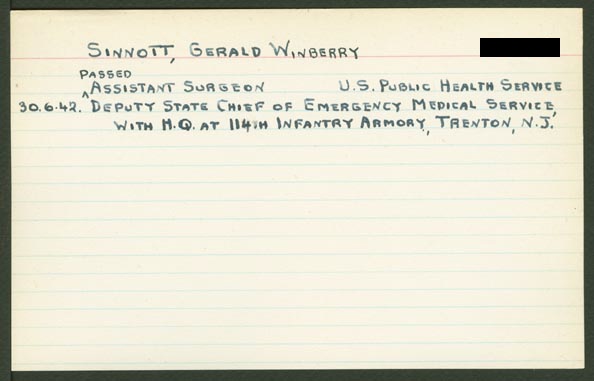 SINNOTT, GERALD WINBERRY
PASSED
^ASSISTANT SURGEON U.S. PUBLIC HEALTH SERVICE
30.6.42. DEPUTY STATE CHIEF OF EMERGENCY MEDICAL SERVICE,
WITH H.Q. AT 114TH INFANTRY ARMORY, TRENTON, N.J.